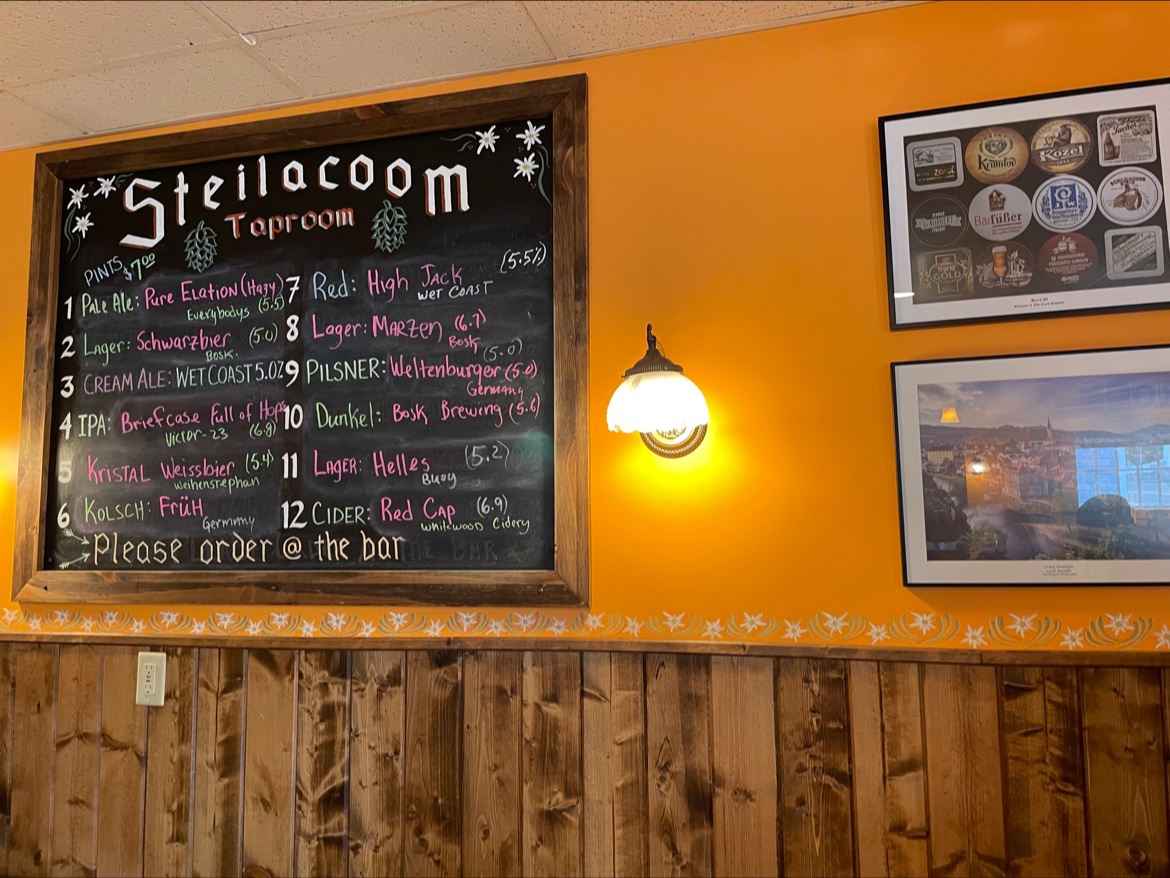 Steilacoom
Taproom
PINTS $7.00
1 Pale Ale: Pure Elation (Hazy)
Everybodys (5.5)
2 Lager: Schwarzbier (5.0)
Bosk.
3 CREAM ALE: WET COAST 5.0%
4 IPA: Briefcase Full of Hops
Victor-23 (6.9)
5 KRISTAL Weissbier (5.4)
Weihenstephan
6 KOLSCH: FRüH
Germany
(5.5%)
7 Red: High JACK
WET COAST
8 Lager: MARZEN (6.7)
Bosk
(5.0)
9 PILSNER: Weltenburger (5.0)
Germany
10 Dunkel: Bosk Brewing (5.6)
11 LAGER: Helles (5.2)
Buoy
12 CIDER: Red CAP (6.9)
Whitewood Cidery
Please order @ the bar
Krumlov
Kozel
Tucher
ZOIGL
Barfüßer
JW
GOLD